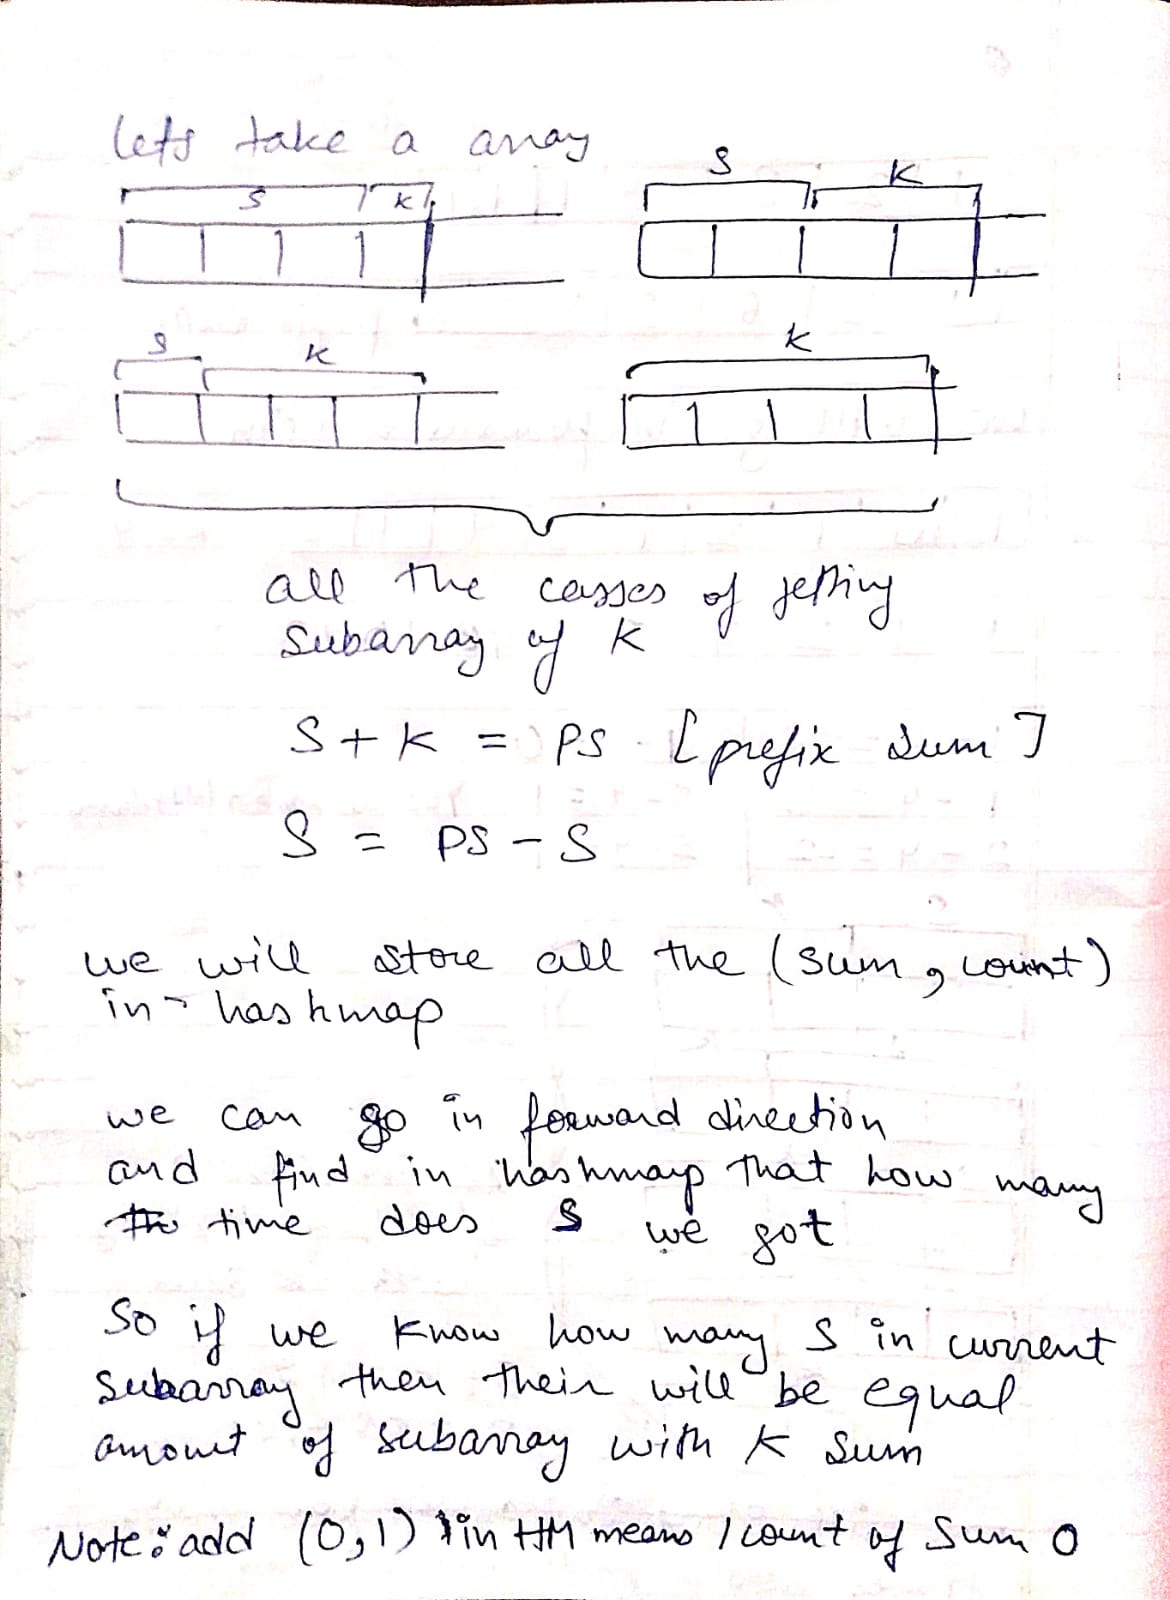 lets take a array
S K
S K
S K
K
all the casses of getting
Subarray of K
S + K = PS [prefix sum]
S = PS - S
we will store all the (sum, count)
in hashmap
we can go in forward direction
and find in hashmap that how many
time does S we got
So if we know how many S in current
Subarray then their will be equal
amount of subarray with K sum
Note: add (0,1) in HM means 1 count of Sum 0